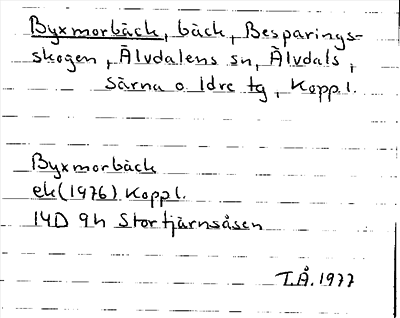 Byxmorbäck, bäck, Besparings-
skogen, Älvdalens sn, Älvdals,
Särna o Idre tg, Kopp.l.
Byxmorbäck
ek (1976) Kopp l.
14D 9h Stortjärnsåsen
T.Å. 1977